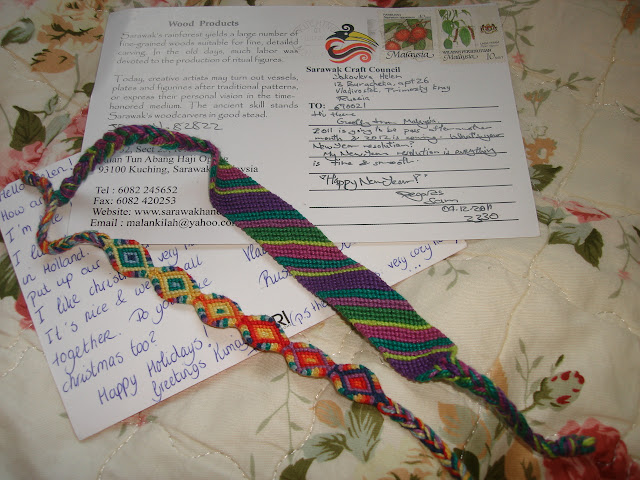 Wood Products
Sarawak's rainforest yields a large number of
fine-grained woods suitable for fine, detailed
carving. In the old days, much labor was
devoted to the production of ritual figures.
Today, creative artists may turn out vessels,
plates and figurines after traditional patterns,
or express their personal vision in the time-
honored medium. The ancient skill stands
Sarawak's woodcarvers in good stead.
Sect
Tun Abang Haji
93100 Kuching, Sarawak
Tel : 6082 245652
Fax: 6082 420253
Website: www.sarawakhan
Email : malankilah@yahoo.com
Malaysia
Malaysia
Sarawak Craft Council
Helen
13 apt 26
Vladivostok, Primorsky Kray
Russia
TO: 690021
Hi there
Greeting from Malaysia
2011 is going to be pass after another
month & 2012 is coming. What's your
New Year resolution?
My New Year resolution is everything
is fine & smooth.
"Happy New Year!"
Regards
07.12.2011
2330
Hello
How a
I'm
I li
in Holland.
Put up our
I like christm
very
It's nice & we all
together. Do you
christmas too?
Happy Holidays!
Greetings
Vla
Russ
very cozy
(PS th